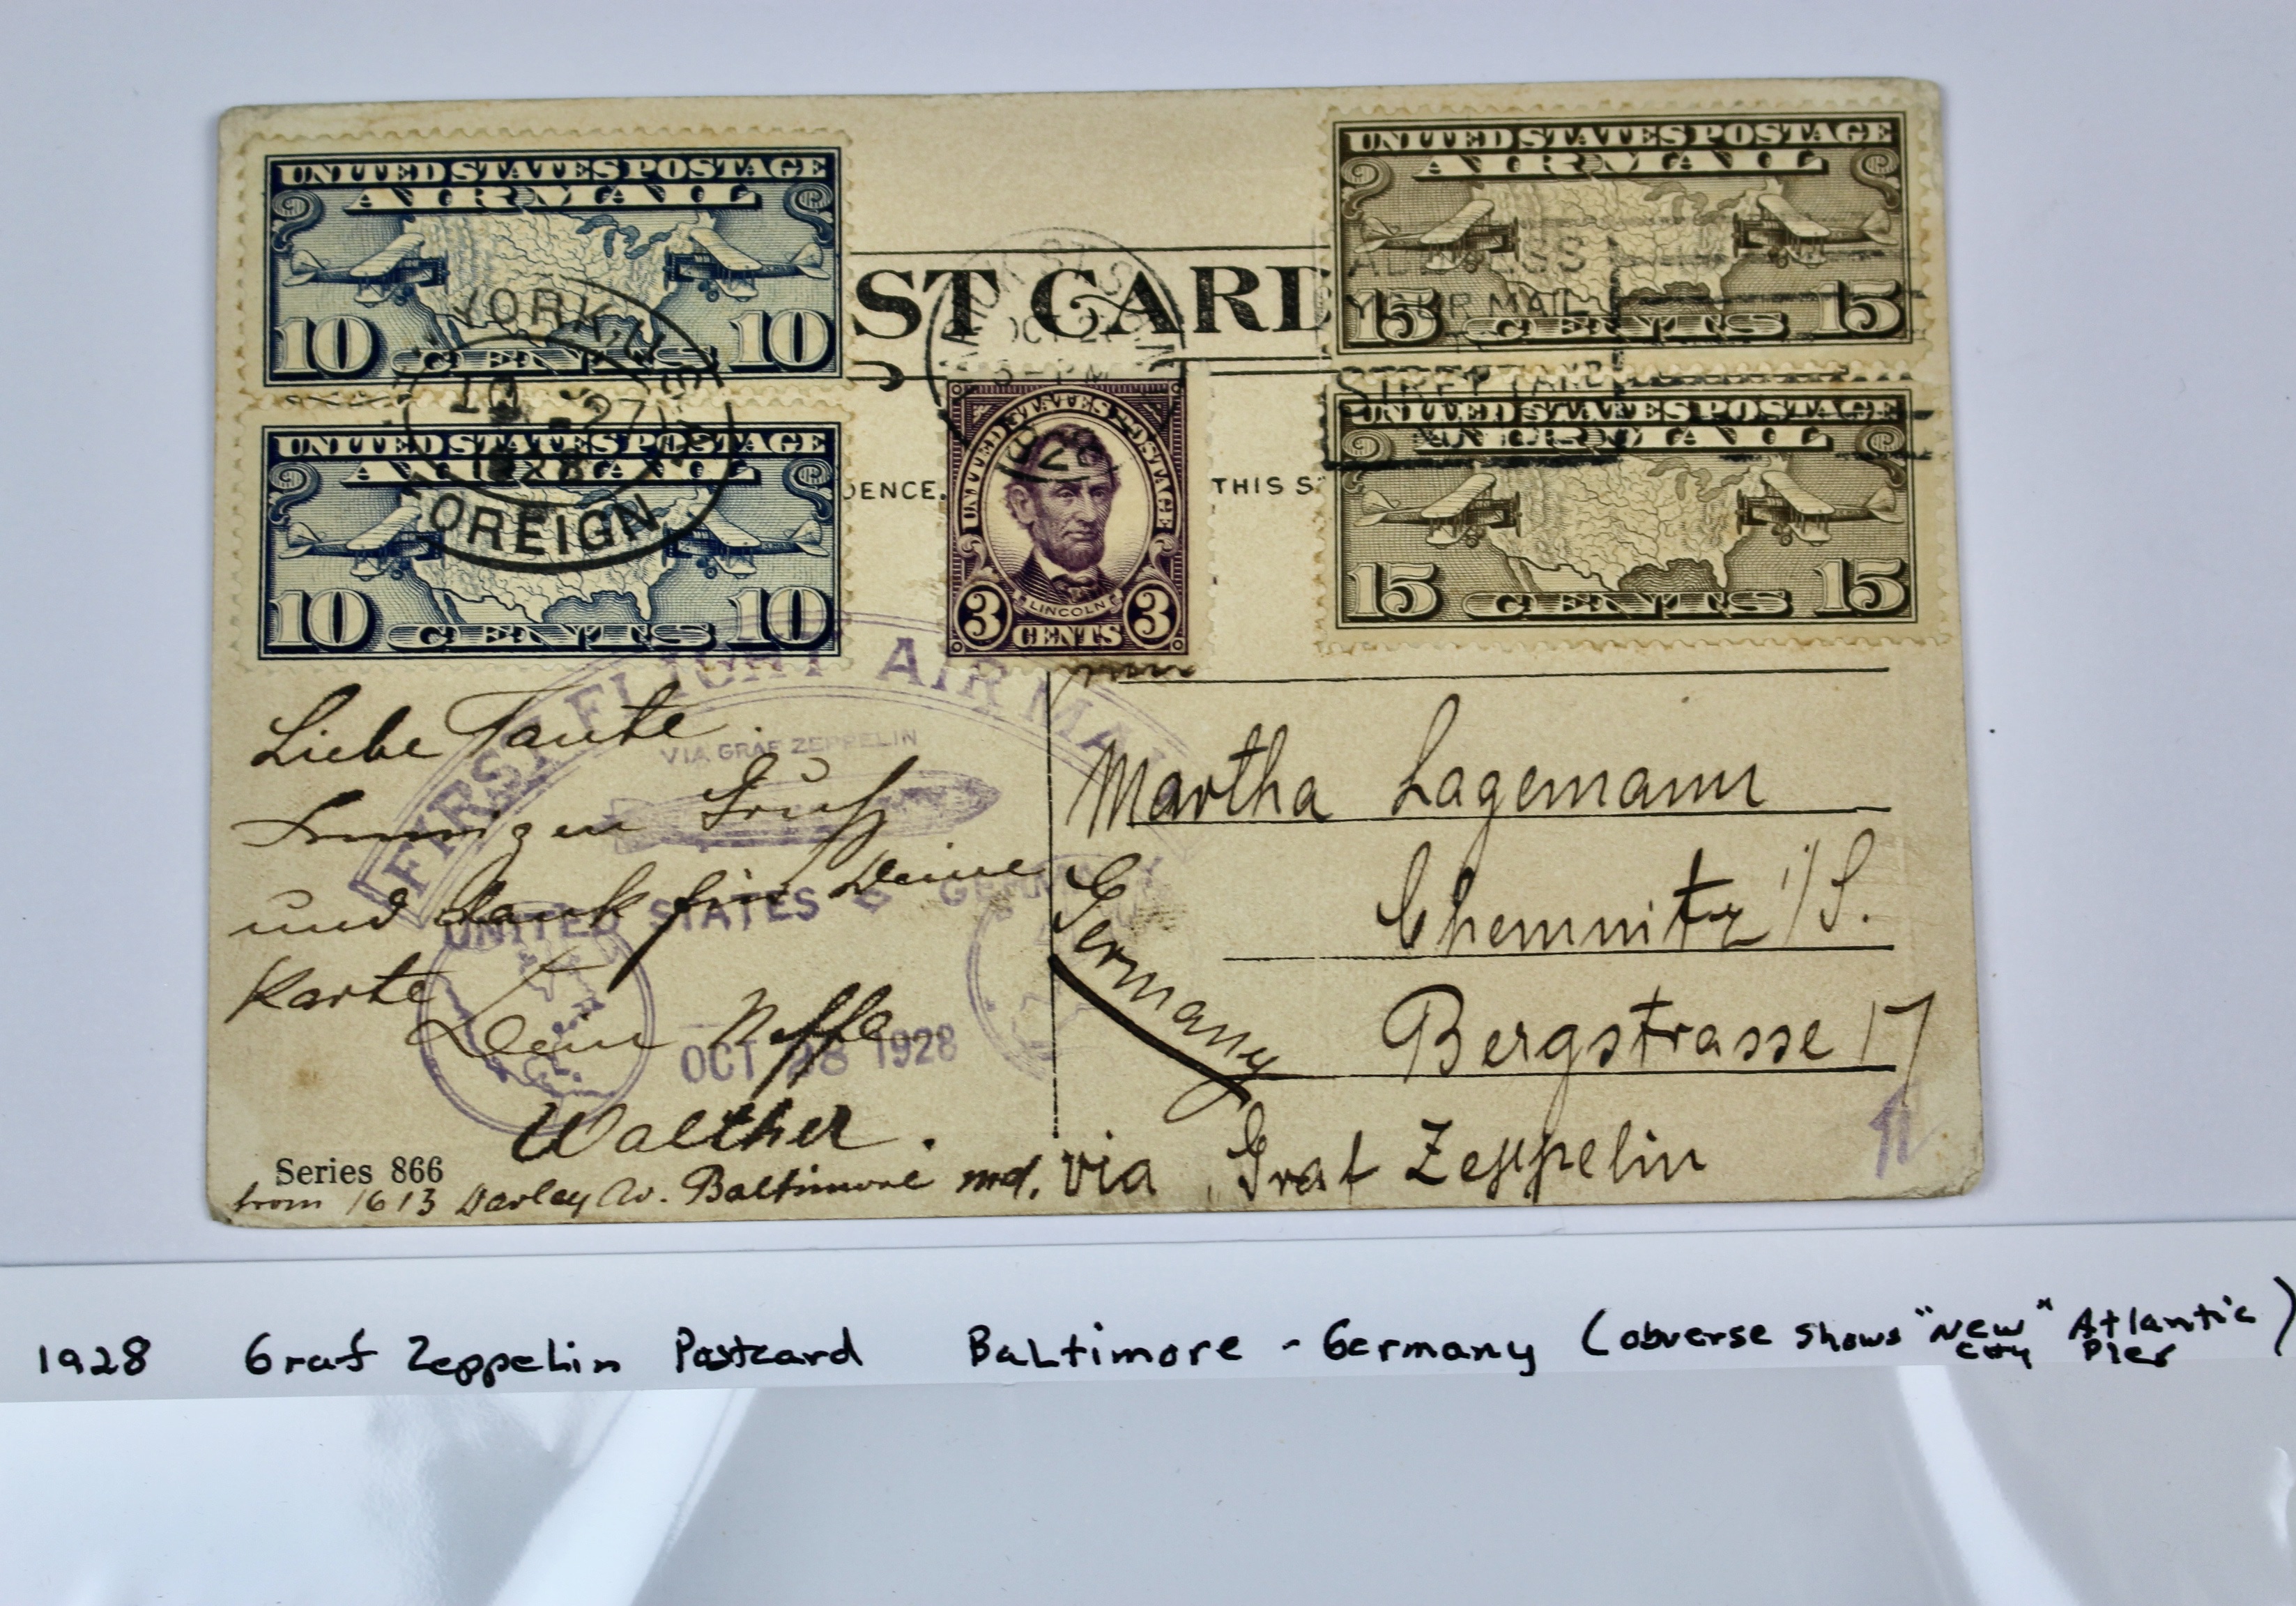 UNITED STATES POSTAGE
AIR MAIL
10 CENTS 10
UNITED STATES POSTAGE
AIR MAIL
15 CENTS 15
ST CARD
YORK
10 27
FOREIGN
OCT 2
1928
ADDRESS
YOUR MAIL
STREET AND
UNITED STATES POSTAGE
AIR MAIL
10 CENTS 10
DENCE.
UNITED STATES POSTAGE
LINCOLN
3 CENTS 3
THIS S
UNITED STATES POSTAGE
AIR MAIL
15 CENTS 15
FIRST FLIGHT AIR MAIL
VIA GRAF ZEPPELIN
UNITED STATES GERMANY
OCT 28 1928
Liebe Tante.
Innigen Gruß
und Dank für Deine
Karte
Dein Neffe
Walther.
Series 866
from 1613 Darley Av. Baltimore md.
Martha Lagemann
Chemnitz i/S.
Bergstrasse 17
Germany
via Graf Zeppelin
1928 Graf Zeppelin Postcard Baltimore - Germany (obverse shows "New" Atlantic City Pier)